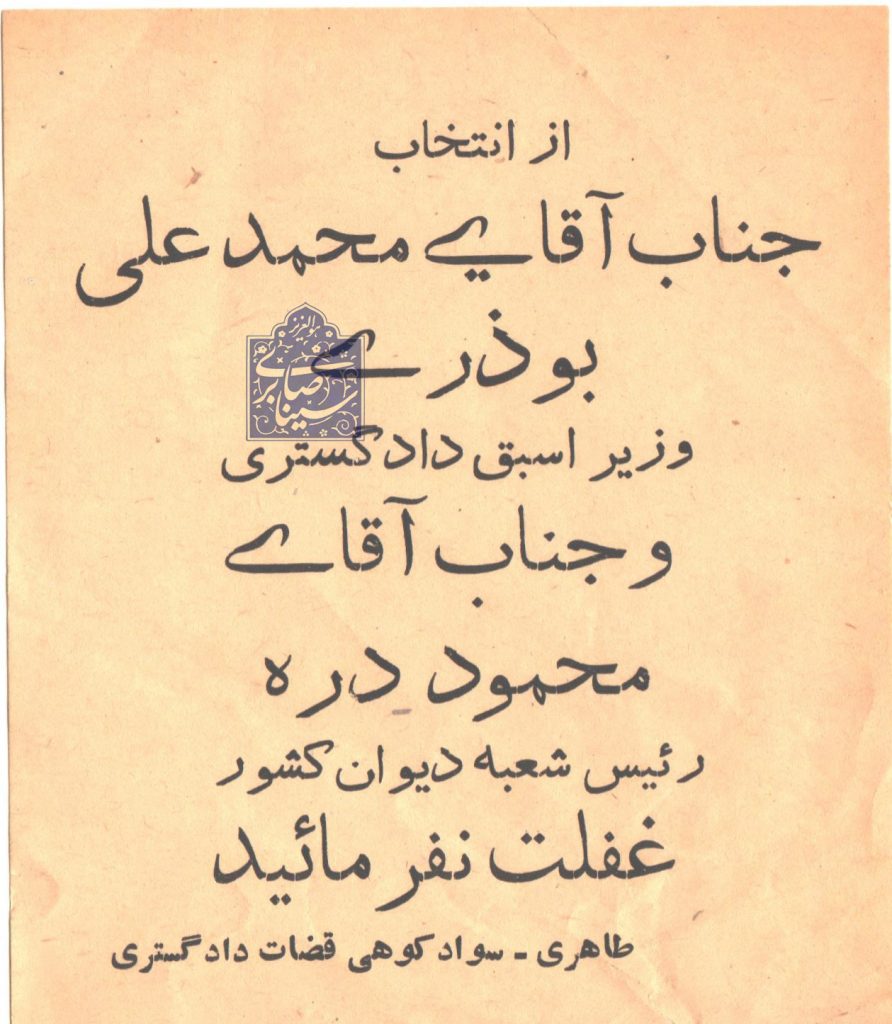 از انتخاب
جناب آقایی محمد علی
بوذری
هوالعزیز
سینا صابری
وزیر اسبق دادگستری
و جناب آقای
محمود دره
رئیس شعبه دیوان کشور
غفلت نفرمائید
طاهری - سوادکوهی قضات دادگستری